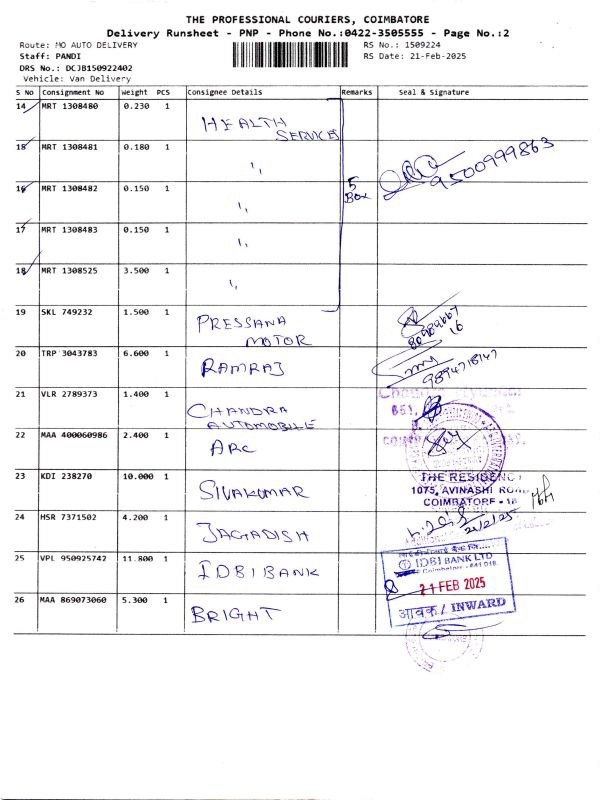 THE PROFESSIONAL COURIERS, COIMBATORE
Delivery Runsheet - PNP - Phone No.:0422-3505555 - Page No.:2
Route: MO AUTO DELIVERY RS No.: 1509224
Staff: PANDI RS Date: 21-Feb-2025
DRS No.: DCJB150922402
Vehicle: Van Delivery
S No Consignment No Weight PCS Consignee Details Remarks Seal & Signature
14 MRT 1308480 0.230 1 HEALTH SERVICES
15 MRT 1308481 0.180 1 ,, 9500999863
16 MRT 1308482 0.150 1 ,, 5 Box
17 MRT 1308483 0.150 1 ,,
18 MRT 1308525 3.500 1 ,,
19 SKL 749232 1.500 1 PRESSANA MOTOR
20 TRP 3043783 6.600 1 RAMRAJ 9894718147
21 VLR 2789373 1.400 1 CHANDRA AUTOMOBILE
22 MAA 400060986 2.400 1 ARC
23 KDI 238270 10.000 1 SIVAKUMAR
THE RESIDENCY
1075, AVINASHI ROAD
COIMBATORE - 18
24 HSR 7371502 4.200 1 JAGADISH 21/2/25
25 VPL 950925742 11.800 1 IDBI BANK
IDBI BANK LTD
Coimbatore - 641 018.
21 FEB 2025
आवक / INWARD
26 MAA 869073060 5.300 1 BRIGHT